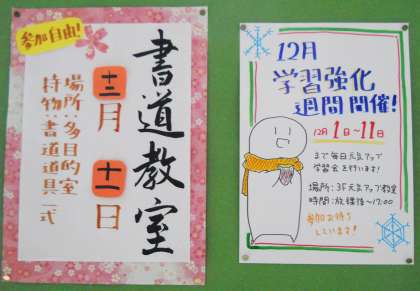 参加自由!
書道教室
十二月十一日
場所:多目的室
持物:書道道具一式
12月
学習強化
週間開催!
12月1日~11日
まで毎日元気アップ
学習会を行います!
場所:3F元気アップ教室
時間:放課後~17:00
参加お待ち
しています!